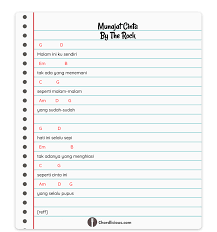 Munajat Cinta
By The Rock
G D
Malam ini ku sendiri
Em B
tak ada yang menemani
C G
seperti malam-malam
Am D G
yang sudah-sudah
G D
hati ini selalu sepi
Em B
tak adanya yang menghiasi
C G
seperti cinta ini
Am D G
yang selalu pupus
[reff]
Chordlicious.com